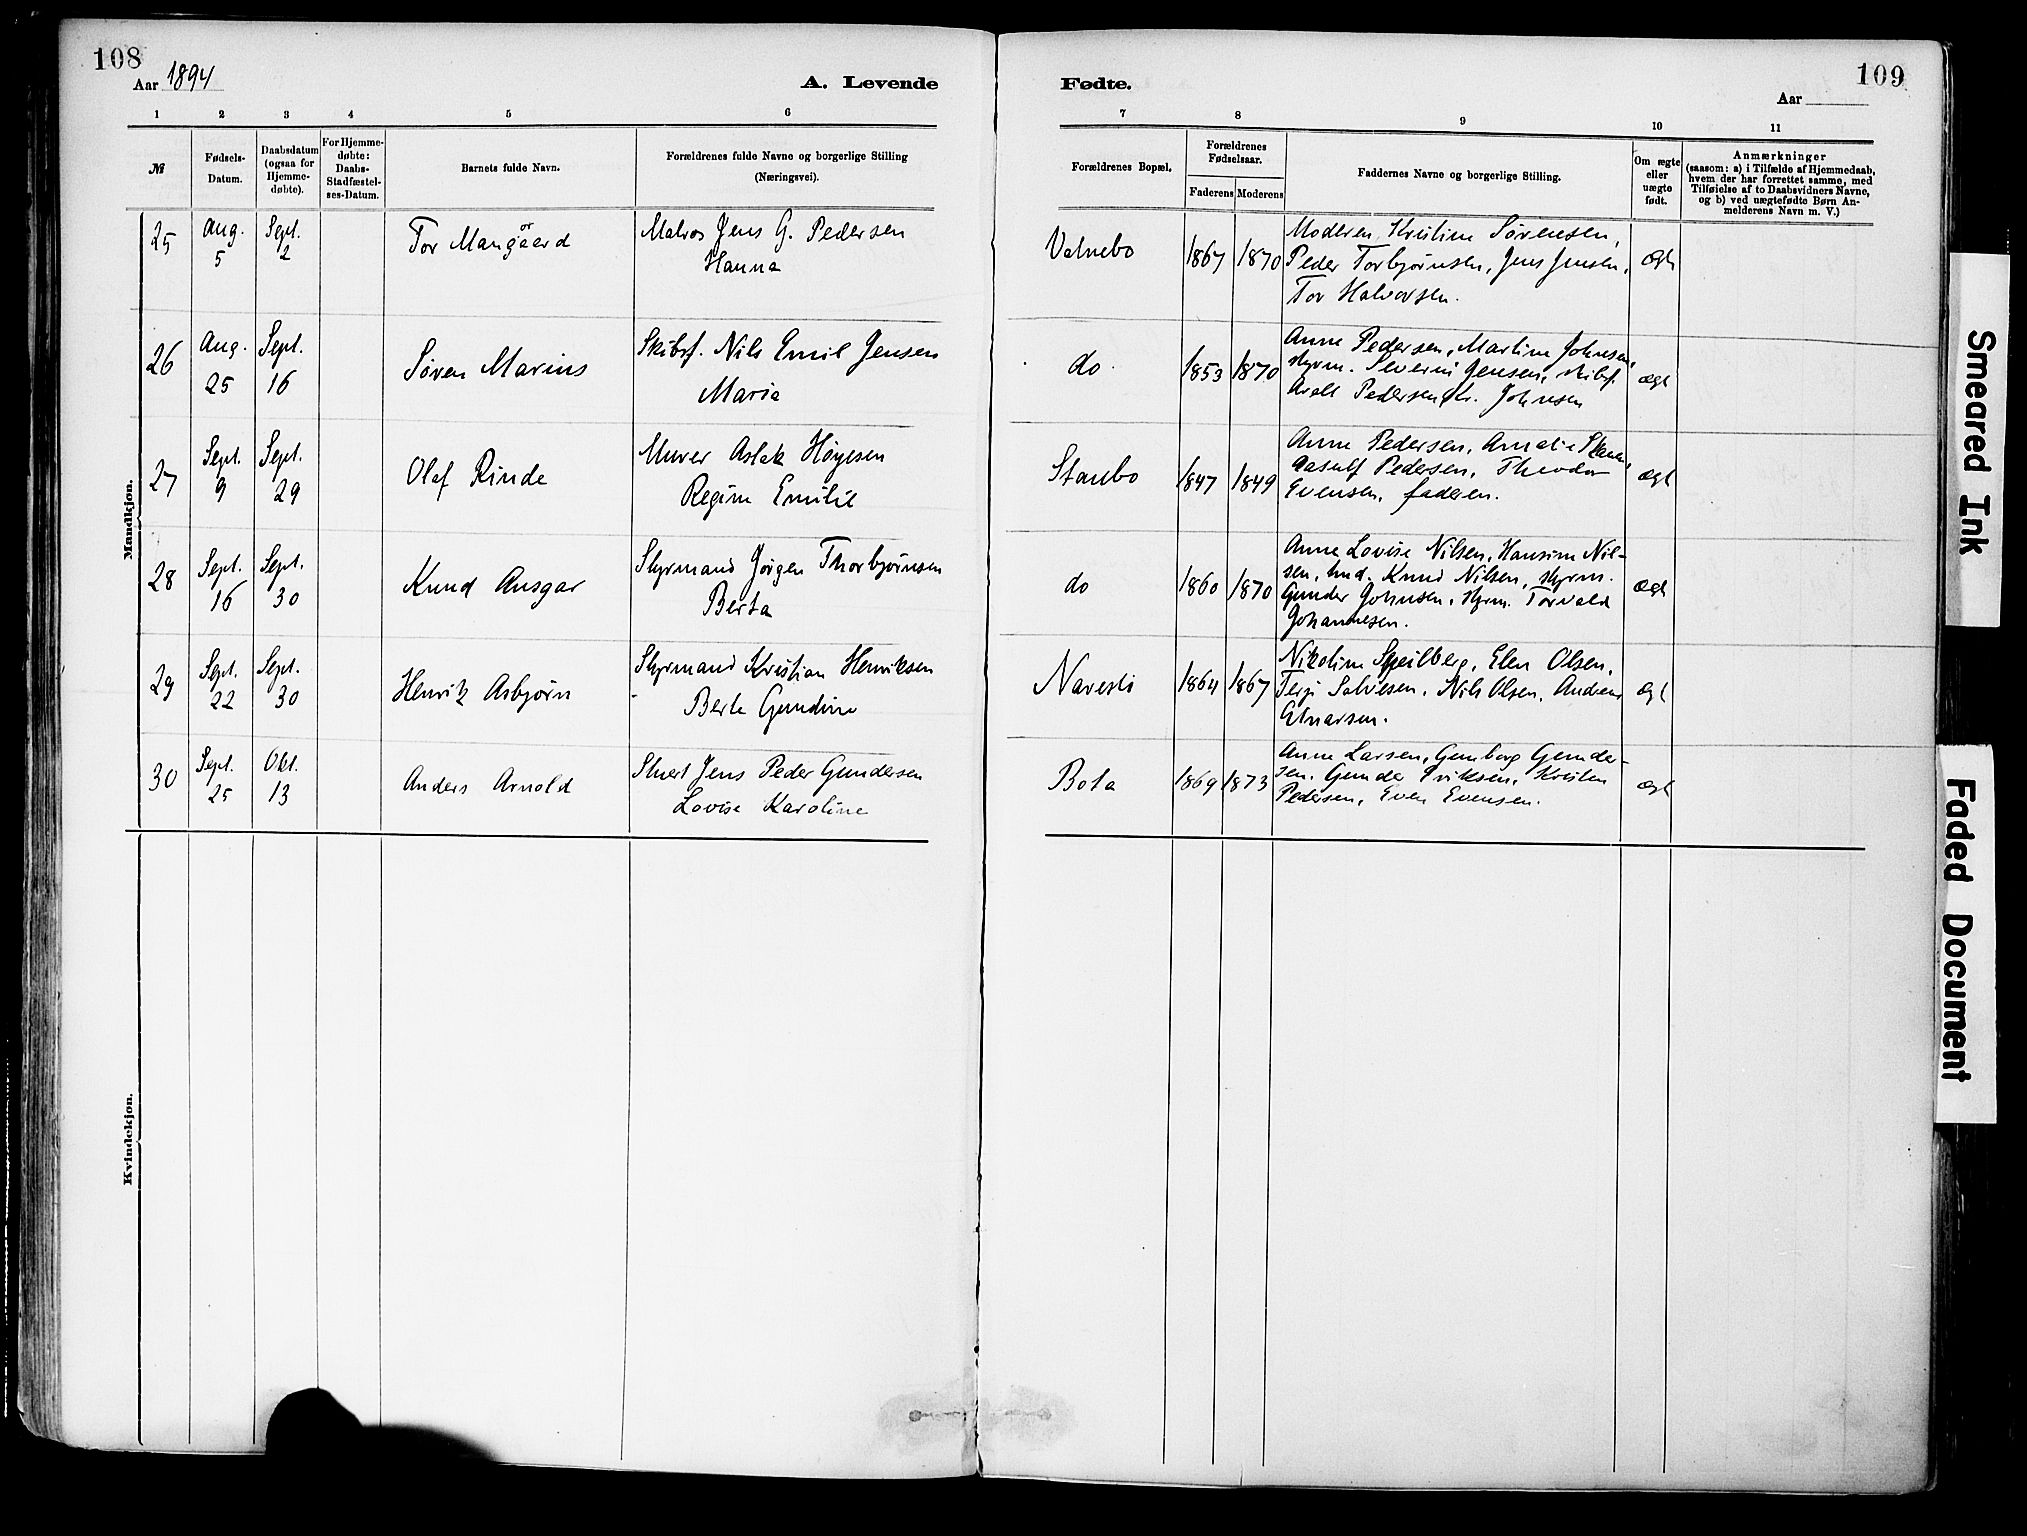 108
Aar 1894
A. Levende
Fødte.
109
Aar
1 2 3 4 5 6 7 8 9 10 11
№
Fødsels-
Datum.
Daabsdatum
(ogsaa for
Hjemme-
døbte).
For Hjemme-
døbte:
Daabs-
Stadfæstel-
ses-Datum.
Barnets fulde Navn.
Forældrenes fulde Navne og borgerlige Stilling
(Næringsvei).
Forældrenes Bopæl.
Forældrenes
Fødselsaar.
Faderens Moderens
Faddernes Navne og borgerlige Stilling.
Om ægte
eller
uægte
født.
Anmærkninger
(saasom: a) i Tilfælde af Hjemmedaab,
hvem der har forrettet samme, med
Tilføielse af to Daabsvidners Navne,
og b) ved uægtefødte Børn An-
melderens Navn m. V.)
Mandkjøn.
25
Aug.
5
Sept.
2
Tor
Matros Jens G. Pedersen
Hanna
1867 1870
Moderen, Kristine Sørensen,
Peder Torbjørnsen, Jens Jensen,
Tor Halvorsen.
ægt
26
Aug.
25
Sept.
16
Søren Marius
Skibsf. Nils Emil Jensen
Maria
do
1853 1870
Anne Pedersen, Martine Johnsen,
styrm. Severin Jensen, skibsf.
Pedersen, Johnsen
ægt
27
Sept.
9
Sept.
29
Olaf Rinde
Murer Aslak Høyesen
Regine Emilie
Stanebo
1847 1849
Anne Pedersen, Amalie
Aasulf Pedersen, Theodor
Evensen, faderen.
ægt
28
Sept.
16
Sept.
30
Knud Ansgar
Styrmand Jörgen Thorbjørnsen
Berta
do
1860 1870
Anne Lovise Nilsen, Hansine Nil-
sen, Knud Nilsen, styrm.
Gunder Johnsen, styrm. Torvald
Johannesen.
ægt
29
Sept.
22
Sept.
30
Henrik Asbjørn
Styrmand Kristian Henriksen
Berte Gundine
Navesti
1864 1867
Nikoline Speilberg, Elen Olsen,
Terje Salvesen, Nils Olsen, Andreas
Einarsen.
ægt
30
Sept.
25
Okt.
13
Anders Arnold
Stuert Jens Peder Gundersen
Lovise Karoline
Bota
1869 1873
Anne Larsen, Gunborg Gunder-
sen, Gunder Eriksen, Kristen
Pedersen, Even Evensen.
ægt
Kvindekjøn.
Smeared Ink
Faded Document